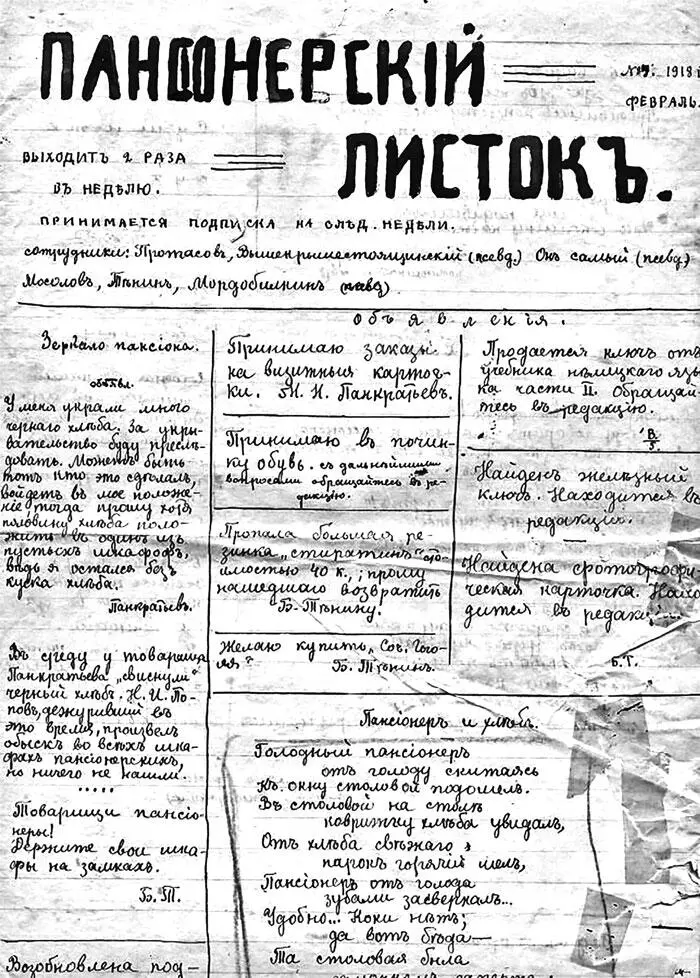 ПАНСІОНЕРСКІЙ
ЛИСТОКЪ.
1918 г.
ФЕВРАЛЬ.
ВЫХОДИТЪ 2 РАЗА
ВЪ НЕДѢЛЮ.
ПРИНИМАЕТСЯ ПОДПИСКА НА СЛѢД. НЕДѢЛИ.
сотрудники: Протасовъ, (псевд.) Онъ самый (псевд)
Мосоловъ, Тѣнинъ, Мордобилкинъ (псевд).
Объявленія.
Зеркало пансіона.
объявл.
У меня украли много
чернаго хлѣба. За укры-
вательство буду преслѣ-
довать. Можетъ быть
тотъ кто это сдѣлалъ,
войдетъ въ мое положе-
ніе, тогда прошу хотя
половину хлѣба поло-
жить въ одинъ изъ
пустыхъ шкафофъ,
вѣдь я остался безъ
куска хлѣба.
Панкратьевъ.
Въ среду у товарища
Панкратьева „свиснули"
черный хлѣбъ. Н. И. По-
повъ, дежурившій въ
это время, произвелъ
обыскъ во всѣхъ шка-
фахъ пансіонерскихъ,
но ничего не нашли.
.....
Товарищи пансіо-
неры!
Держите свои шка-
фы на замкахъ.
Б. Т.
Возобновлена под-
Принимаю заказы
на визитныя карточ-
ки. Н. Н. Панкратьевъ.
Принимаю въ почин-
ку обувь. съ дальнѣйшими
вопросами обращайтесь въ ре-
дакцію.
Пропала большая ре-
зинка „стиратинъ" сто-
имостью 40 к.; прошу
нашедшаго возвратить
Б. Тѣнину.
Желаю купить „Соч. Гого-
ля"
Б. Тѣнинъ.
Продается ключъ отъ
учебника нѣмецкаго яз.
ка части II. Обращай-
тесь въ редакцію.
Найденъ желѣзный
ключъ. Находится въ
редакціи.
Найдена фотографи-
ческая карточка. Нахо-
дится въ редак.
Б. Т.
Пансіонеръ и хлѣбъ.
Голодный пансіонеръ
отъ голоду скитаясь
Къ окну столовой подошелъ.
Въ столовой на столѣ
ковришку хлѣба увидалъ,
Отъ хлѣба свѣжаго
парокъ горячій шелъ,
Пансіонеръ отъ голода
зубами засверкалъ...
Удобно... Коки нѣтъ;
да вотъ бѣда—
Та столовая была